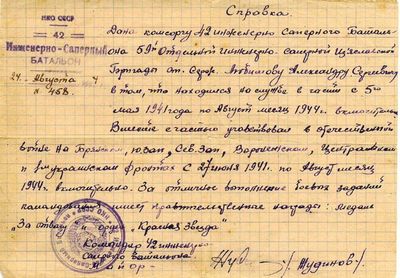 Справка.
НКО СССР
42
Инженерно-Саперный
БАТАЛЬОН
24 Августа 4
N 458
Дана комсоргу 42 инженерно Саперного Баталь-
она 59й Отдельной Инженерно-Саперной
Бригады Ст. Серж. Александру Сергеевичу
в том, что находился на службе в части с 5го
мая 1941 года по Август месяц 1944 г. включительно
Вместе с частью участвовал в отечественной
войне на Брянском, Юзап, Сев. Зап, Воронежском, Центральном
и 1м украинском фронтах с 1941. по Август месяц
1944г. включительно. За отличное выполнение боевых заданий
командования имеет правительственные награды: медаль
"За отвагу" и орден "Красная Звезда"
Командир 42 инженерно
Саперного батальона
Майор - /Жудинов/